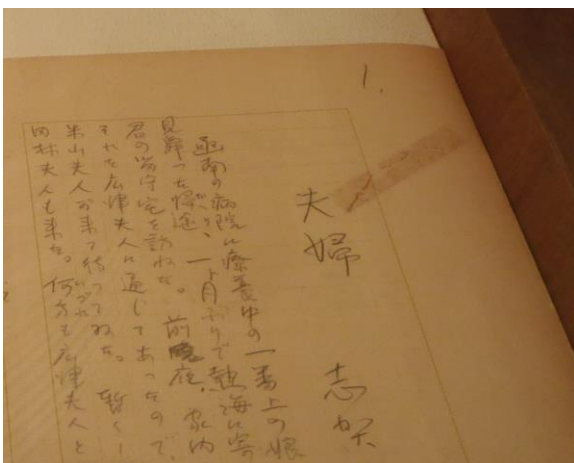 1.
夫婦
志
函南の病院に療養中の一番上の娘
見舞つた帰途、一ヶ月ぶりで熱海に寄
君の留守宅を訪ねた。前夜、家内
それを広津夫人に通じてあつたので、
米山夫人が来て待つてゐた。暫くし
田林夫人も来た。何方も広津夫人と